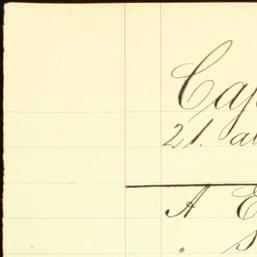 Cap
21. al
A E
" S